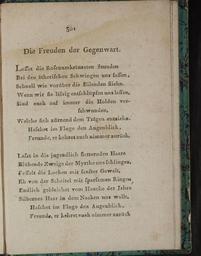 Die Freuden der Gegenwart.
Lasset die Rosenumkränzten Stunden
Bei den ätherischen Schwingen uns fassen,
Schnell wie vorüber die Eilenden fliehn.
Wenn wir sie lässig entschlüpfen uns lassen,
Sind auch auf immer die Holden verschwunden,
Welche sich zürnend dem Trägen entziehn.
Haschet im Fluge den Augenblick,
Freunde, er kehret auch nimmer zurück.
Lasst in die jugendlich flatternden Haare
Blühende Zweige der Myrthe uns schlingen,
Fesselt die Locken mit sanfter Gewalt,
Eh von der Scheitel mit sparsamen Ringen
Endlich gebleichet vom Hauche der Jahre
Silbernes Haar in den Nacken uns wallt.
Haschet im Fluge den Augenblick,
Freunde, er kehret auch nimmer zurück